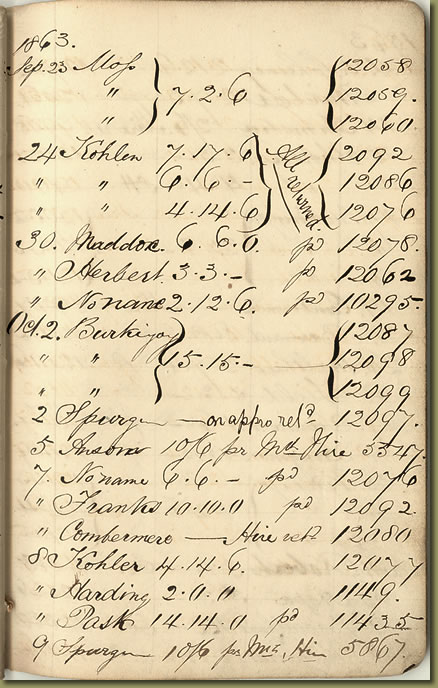 1863.
Sep. 23 Moss 12058
" 7.2.6 12059.
" 12060
24 Kohler 7.17.6 All returned 2092
" " 6.6.- 12086
" " 4.14.6 12076
30. Maddox 6.6.0. pd 12078.
" Herbert 3.3.- pd 12062
" No name 2.12.6 pd 10295.
Oct. 2. 12087
" " 15.15.- 12098
" " 12099
2 Spurgin — on appro retd 12097.
5 10/6 pr Mth Hire 5347.
7. No name 6.6.- pd 12076
" Franks 10.10.0 pd 12092.
" Combermere — Hire retd 12080
8 Kohler 4.14.6. 12077
" Harding 2.0.0 1149.
" Pask 14.14.0 pd 11435
9 Spurgin 10/6 pr Mth Hire 5867.